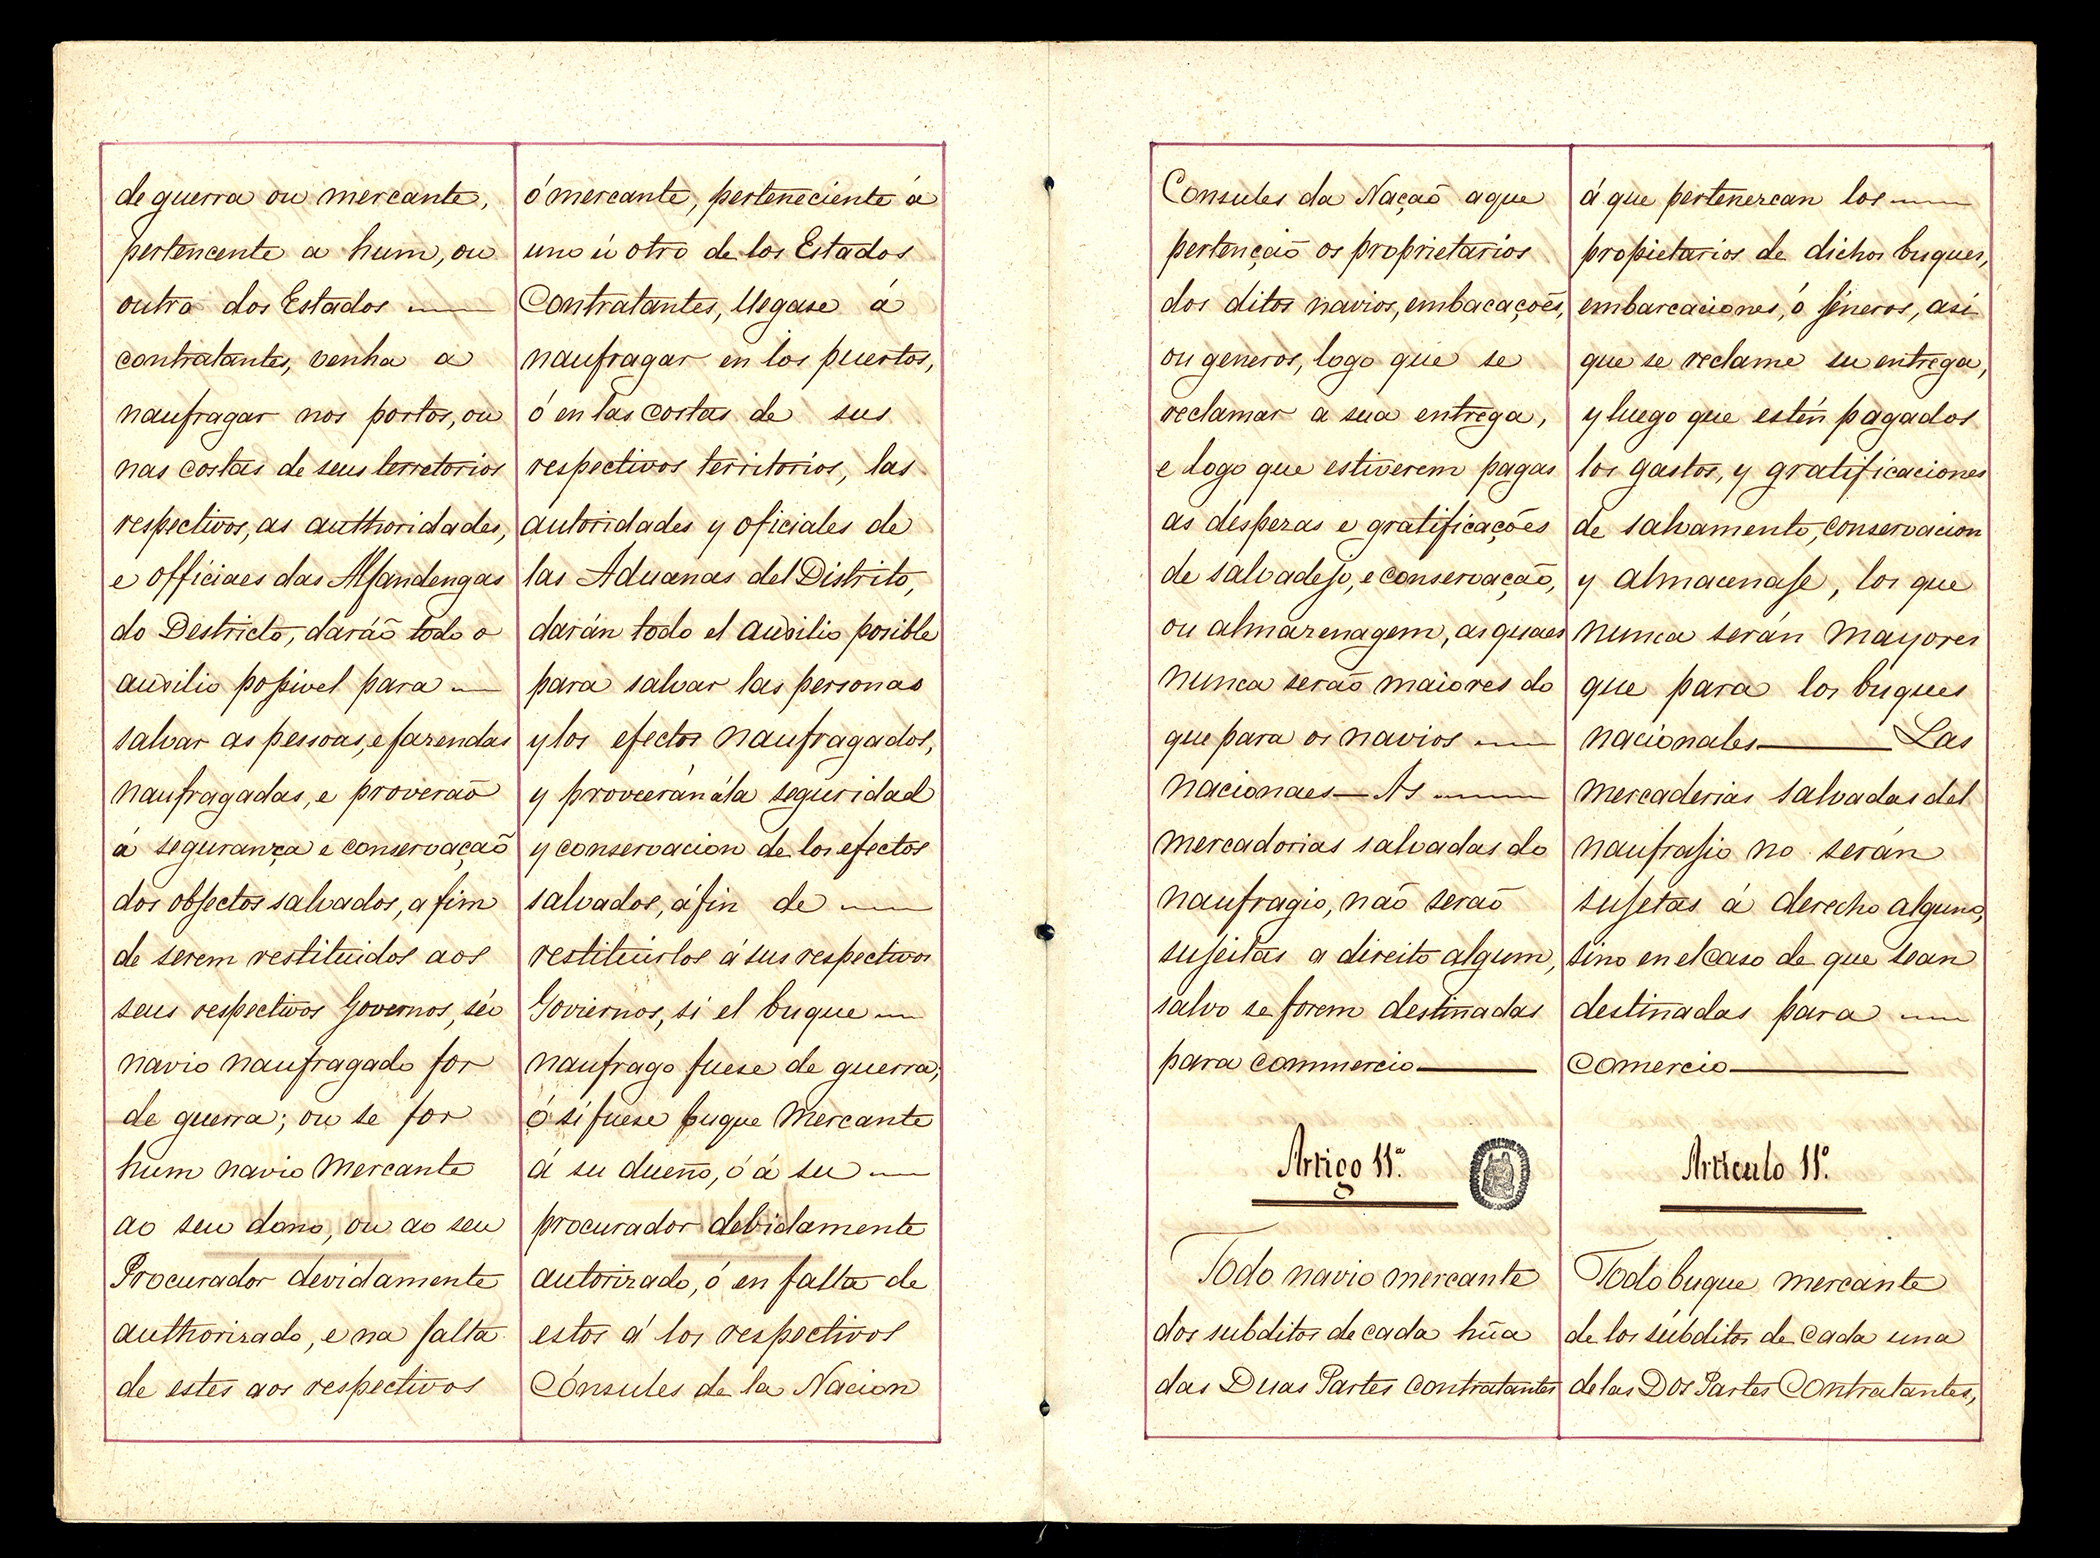 de guerra ou mercante,
pertencente a hum, ou
outro dos Estados
contratantes, venha a
naufragar nos portos, ou
nas costas de seus terretorios
respectivos, as authoridades,
e officiaes das Alfandengas
do Destricto, daráõ todo o
auxilio possivel para
salvar as pessoas, e fazendas
naufragadas, e proverão
á segurança e conservação
dos objectos salvados, a fim
de serem restituidos aos
seus respectivos Governos, séo
navio naufragado for
de guerra; ou se for
hum navio mercante
ao seu dono, ou ao seu
Procurador devidamente
authorizado, e na falta
de estes aos respectivos
ó mercante, perteneciente á
uno ú otro de los Estados
Contratantes, llegase á
naufragar en los puertos,
ó en las costas de sus
respectivos territorios, las
autoridades y oficiales de
las Aduanas del Distrito,
darán todo el auxilio posible
para salvar las personas
y los efectos naufragados,
y proveerán á la seguridad
y conservacion de los efectos
salvados, á fin de
restituirlos á sus respectivos
Goviernos, si el buque
naufrago fuese de guerra;
ó si fuese buque mercante
á su dueño, ó á su
procurador debidamente
autorizado, ó en falta de
estos á los respectivos
Cónsules de la Nacion
Consules da Nação a que
pertenção os proprietarios
dos ditos navios, embacações,
ou generos, logo que se
reclamar a sua entrega,
e logo que estiverem pagas
as despezas e gratificações
de salvadejo, e conservação,
ou almazenagem, as quaes
nunca serão maiores do
que para os navios
nacionaes — As
mercadorias salvadas do
naufragio, não serão
sujeitas a direito algum,
salvo se forem destinadas
para commercio
Artigo 11.º
Todo navio mercante
dos subditos de cada hũa
das Duas Partes Contratantes
á que pertenezcan los
propietarios de dichos buques,
embarcaciones, ó jéneros, asi
que se reclame su entrega,
y luego que estén pagados
los gastos, y gratificaciones
de salvamento, conservacion
y almacenaje, los que
nunca serán mayores
que para los buques
nacionales — Las
mercaderias salvadas del
naufrajio no serán
sujetas á derecho alguno,
sino en el caso de que sean
destinadas para
comercio
Articulo 11.º
Todo buque mercante
de los súbditos de cada una
de las Dos Partes Contratantes,